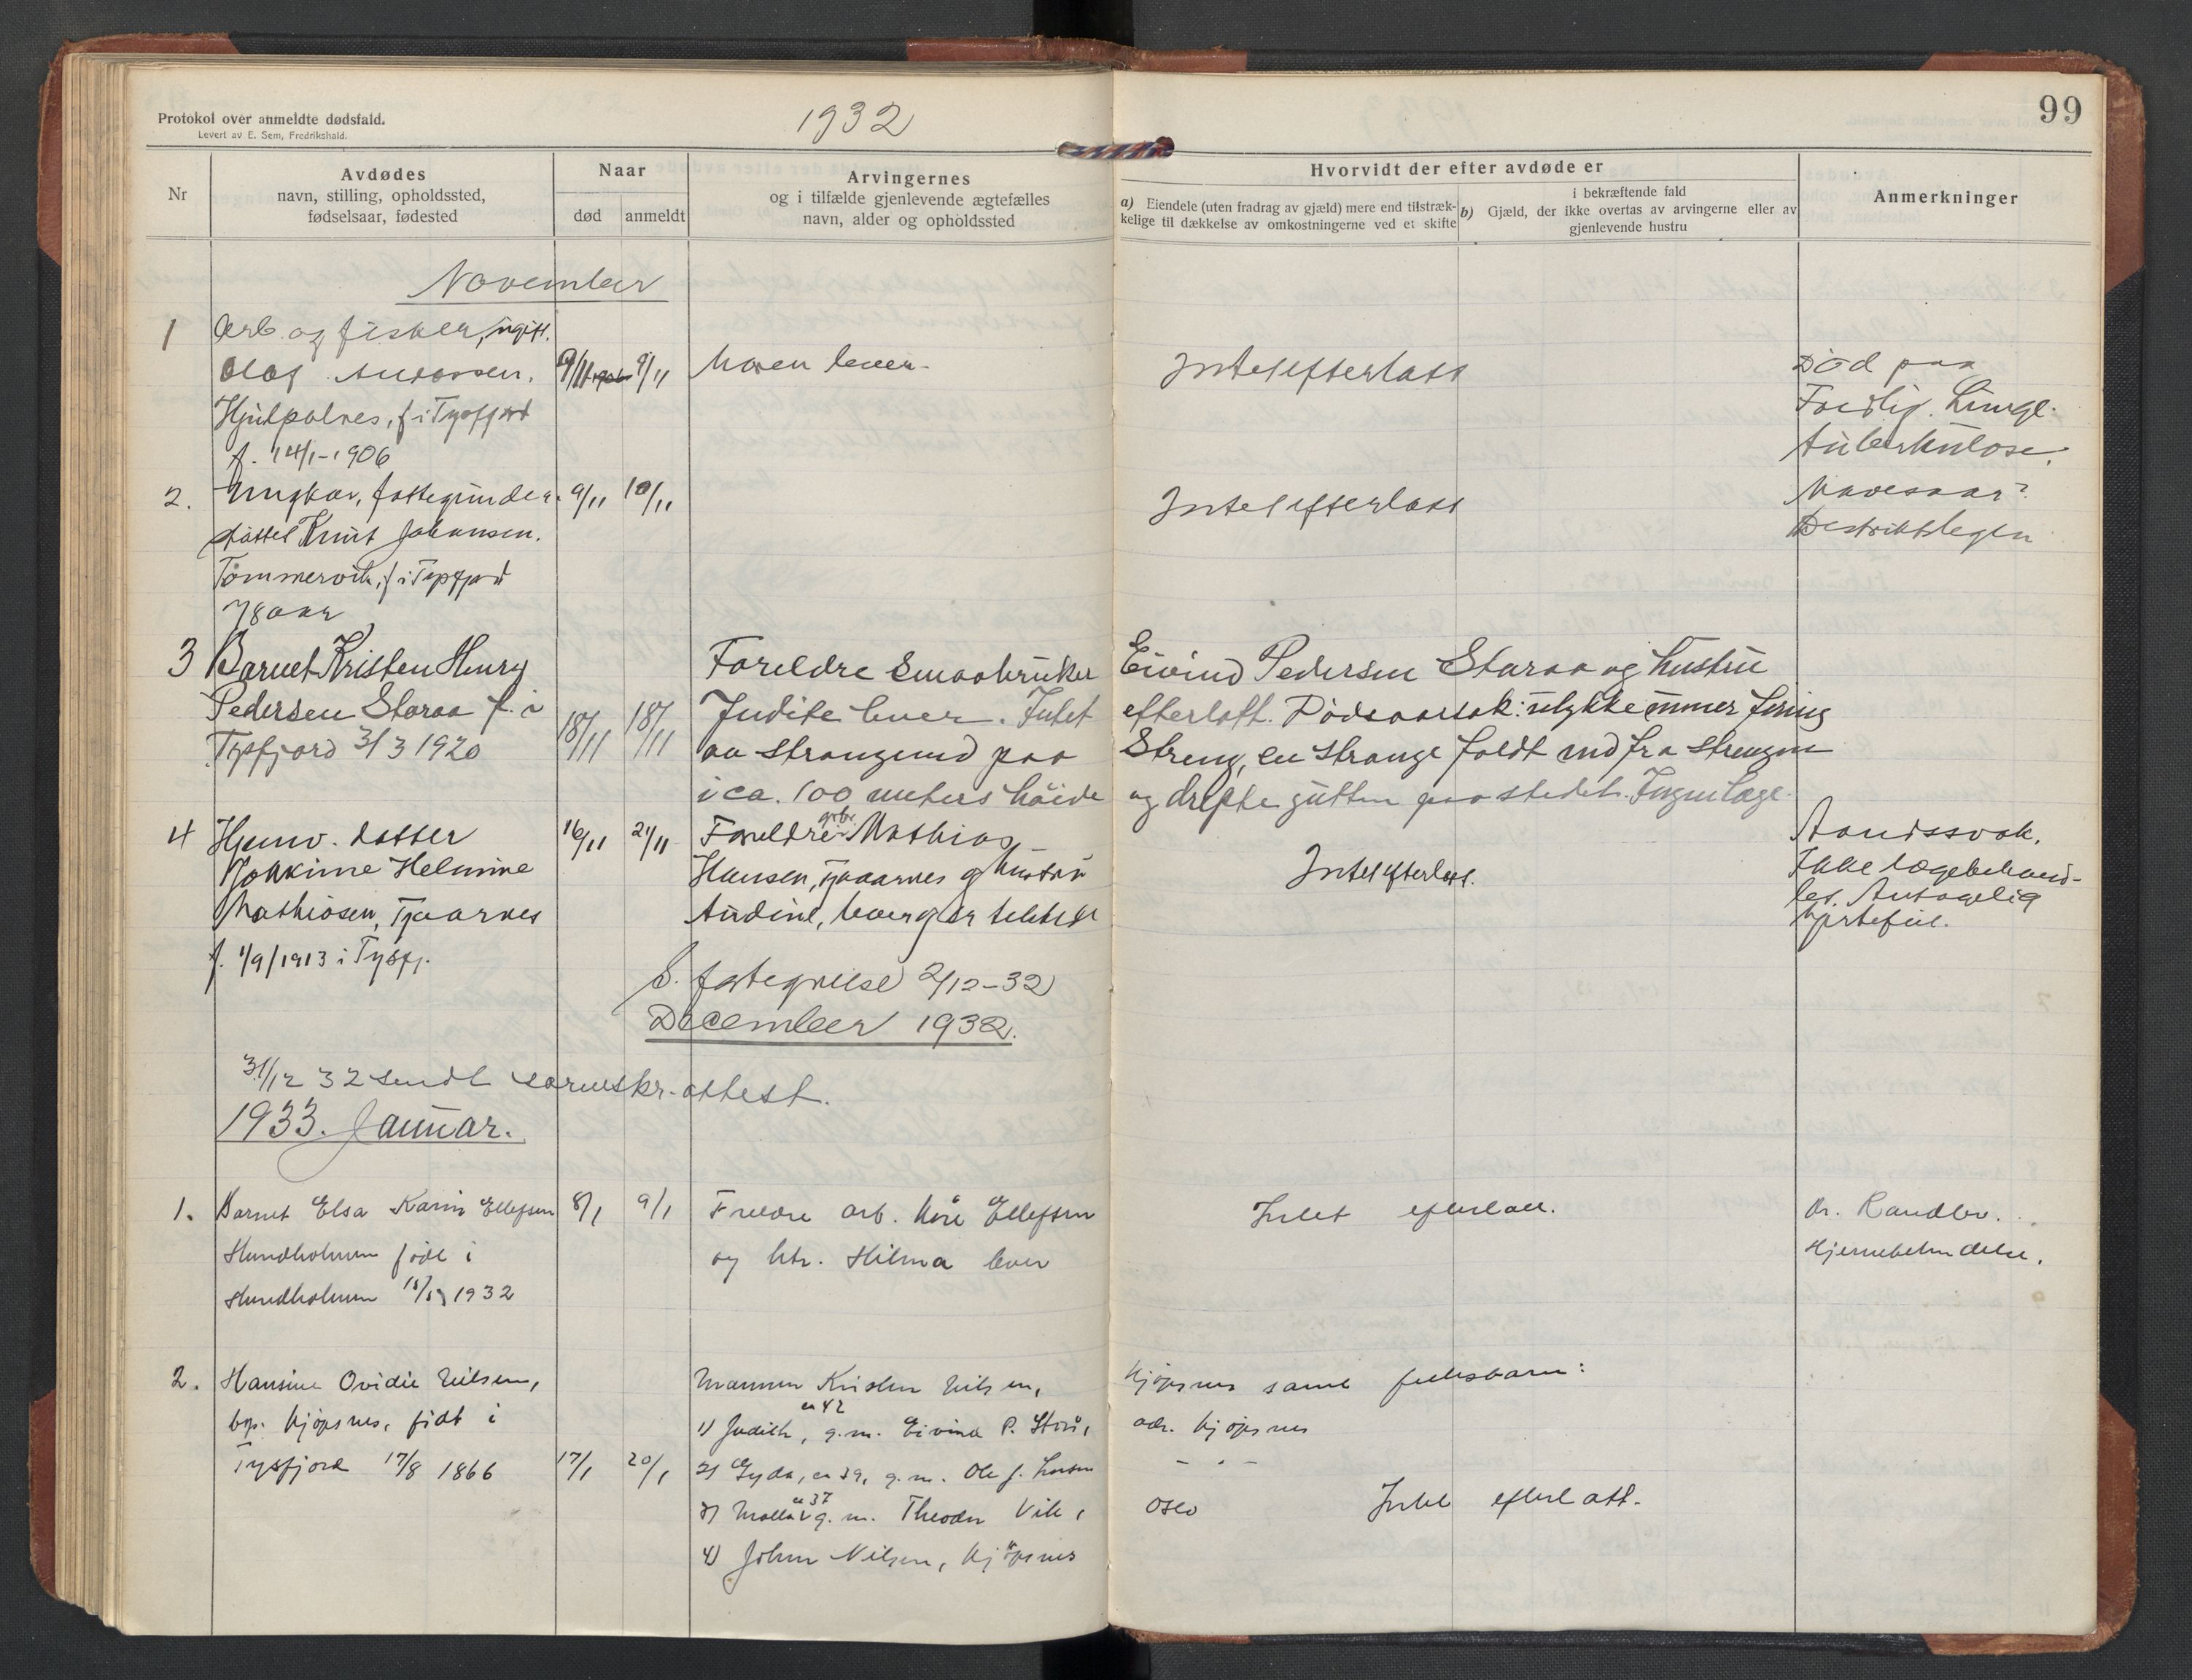 Protokol over anmeldte dødsfald.
Levert av E. Sem, Fredrikshald.
1932
99
Nr
Avdødes
navn, stilling, opholdssted,
fødselsaar, fødested
Naar
død
anmeldt
Arvingernes
og i tilfælde gjenlevende ægtefælles
navn, alder og opholdssted
Hvorvidt der efter avdøde er
a) Eiendele (uten fradrag av gjæld) mere end tilstræk-
kelige til dækkelse av omkostningerne ved et skifte
i bekræftende fald
b) Gjæld, der ikke overtas av arvingerne eller av
gjenlevende hustru
Anmerkninger
November
1 Arb. og fisker, ugift.
Olaf Andersen. 9/11 9/11 Moren lever. Intet efterlatt Død paa
f i Tysfjord
f. 14/1-1906
2. Ungkar, 9/11 10/11 Intet efterlatt
støttet Knut Johansen. Distriktslegen
Tømmervik, f i Tysfjord
78 aar
3 Barnet Kristen Henry Foreldre Smaabruker Eivind Pedersen Staraa og hustru
Pedersen Staraa f. i 18/11 18/11 Judite lever. Intet efterlatt. Dødsaarsak: ulykke
Tysfjord 3/3 1920 paa Streng, en strange faldt ned fra strengen
i ca. 100 meters høide og drepte gutten paa stedet. Ingen læge.
4 Hjemv. datter 16/11 21/11 Foreldre: grbr. Mathias Aandssvak.
Joakime Helmine Hansen, og hustru Intet efterlatt. Ikke lægebehand-
Mathiasen, Andine, lever let. Antagelig
f. 1/9/1913 i Tysfj. hjertefeil.
2/12-32
December 1932.
31/12 32 sendt sorenskr. attest.
1933. Januar.
1. Barnet Elsa Karin Ellefsen 8/1 9/1 Foreldre arb. Ellefsen Intet efterlatt. Dr. Randby.
Hundholmen født i og htr. Hilma lever
Hundholmen 1932
2. Hansine Ovidie Nilsen, Mannen Kristen Nilsen, Kjøpsnes samt fellesbarn:
Kjøpsnes, født i 1) Judith, ca 42 g.m. Eivind P. Storå, adr. Kjøpsnes
Tysfjord 17/8 1866 17/1 20/1 2) Gyda, ca 39, g.m. Ole J. Larsen - " -
3) ca 37 g.m. Theodor Vik, Oslo Intet efterlatt.
4) Johan Nilsen, Kjøpsnes